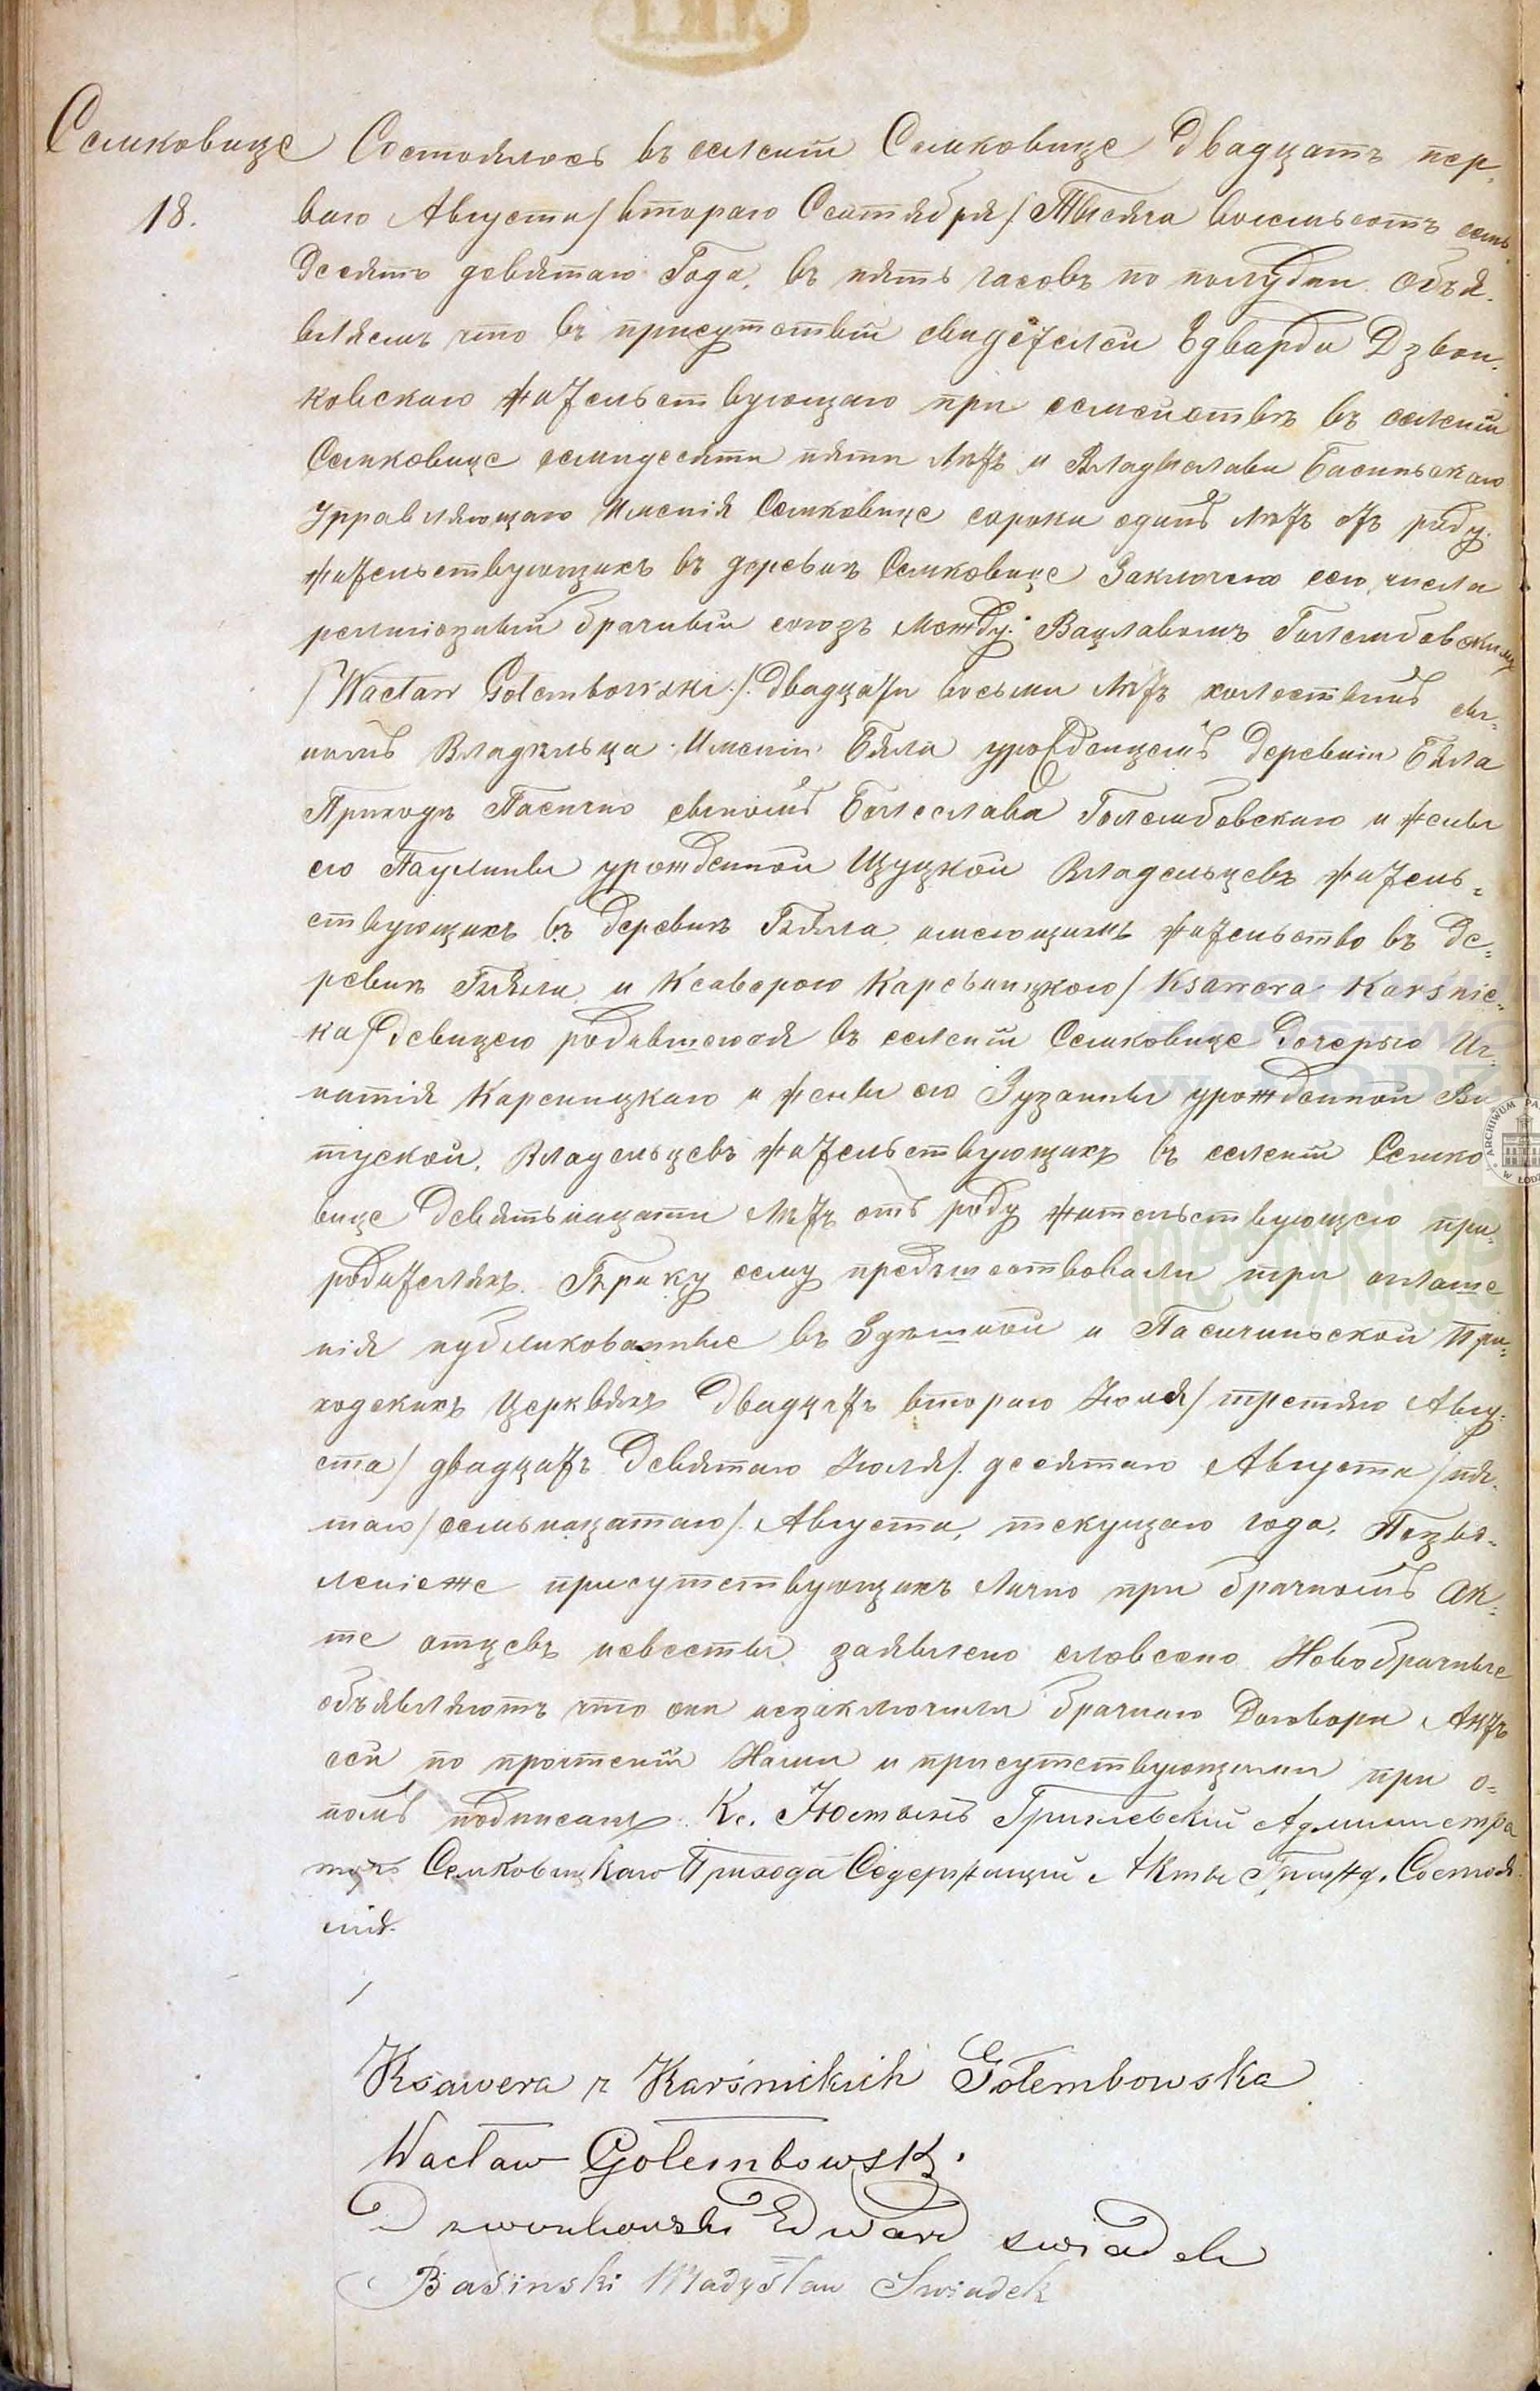 Семковице Состоялось въ селеніи Семковице двадцать пер-
18. ваго Августа / втораго Сентября / Тысяча восемьсотъ семь
десятъ девятаго Года, въ пять часовъ по полудни. Объя-
вляемъ что въ присутствіи свидетелей Эдварда Дзвон-
ковскаго жательствующаго при семействѣ въ селеніи
Семковице семидесяти пяти лѣтъ и Владислава Басиньскаго
Урравляющаго Именія Семковице сорока одинъ лѣтъ отъ роду
жательствующихъ въ деревнѣ Семковице Заключено сего числа
религіозный брачный союзъ между Вацлавомъ Голембовскимъ
/ Wacław Gołembowski / двадцати восьми лѣтъ холостымъ сы-
номъ Владѣльца Именіи Бяла уроżденцемъ деревніи Бяла
Приходъ Пасечно сыномъ Болеслава Голембовскаго и жены
его Паулины урожденной Щуцкой Владельцевъ жатель-
ствующихъ въ деревнѣ Бяла имеющимъ жательство въ де-
ревнѣ Бяла и Ксаверою Карсьницкою / Ksawera Karśnic-
ka / девицею родившеюся въ селеніи Семковице дочерью Иг-
натія Карсницкаго и жены его Зузанны урожденной
туской, Владельцевъ жательствующихъ въ селеніи Семко
вице девятьнацати лѣтъ отъ роду жательствующею при
родителяхъ. Браку сему предшествовали три оглаше
нія публикованные въ Здѣшной и Пасичиньской При-
ходскихъ Церквяхъ двадцать втораго Іюля / третяго Авгу-
ста / двадцать девятаго Іюля / десятаго Августа / пя-
таго / семьнацатаго / Августа, текущаго года. Позво-
леніеже присутствующихъ лично при брачномъ Ак-
те отцевъ невесты заявлено словесно. Новобрачные
объявляютъ что они незаключили брачнаго Договора Актъ
сей по прочтеніи Нами и присутствующими при о-
номъ подписанъ. Кс. Юстынъ Администра
торъ Семковицкаго Прихода Содержащій Акты Гражд. Состоя-
нія.
Ksawera z Karśnickich Gołembowska
Wacław Gołembowski
Dzwonkowski Edward swiadek
Basinski Władysław Swiadek